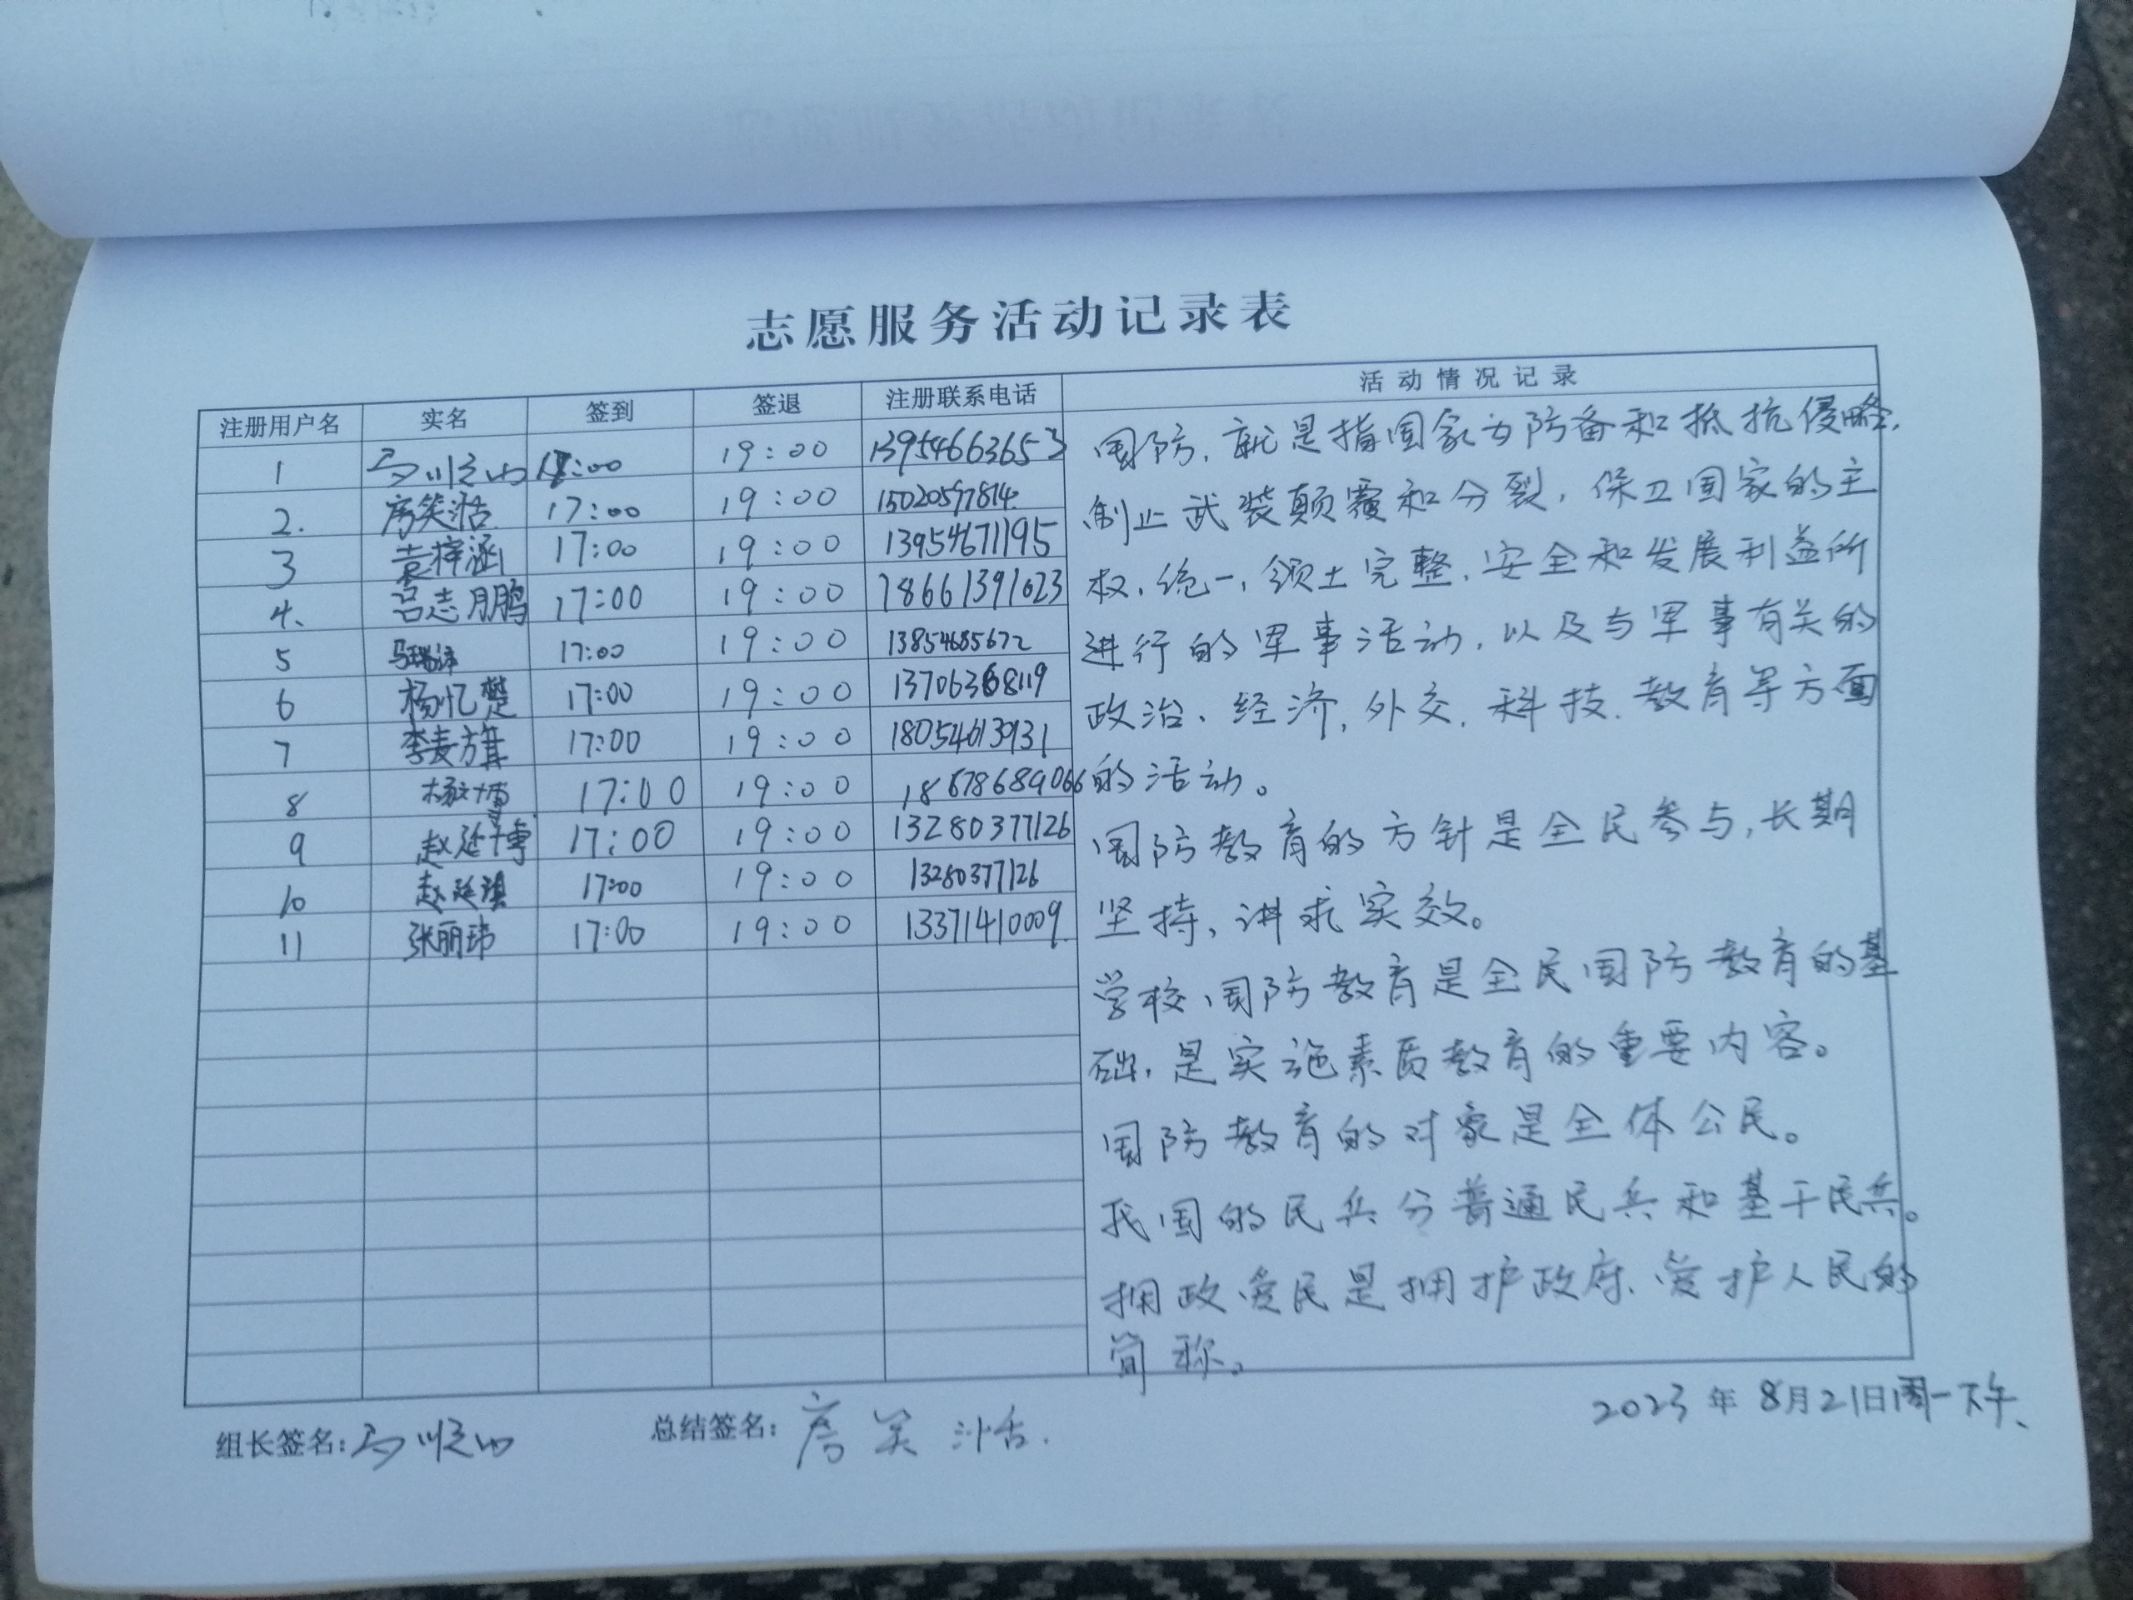 志愿服务活动记录表
注册用户名 实名 签到 签退 注册联系电话 活动情况记录
1 19:00 13954663653
2. 房笑浩 17:00 19:00 15020597814
3 袁梓涵 17:00 19:00 13954671195
4、 吕志鹏 17:00 19:00 18661391623
5 17:00 19:00 13854685672
6 杨忆楚 17:00 19:00 13706368119
7 李麦旗 17:00 19:00 18054613931
8 17:00 19:00 18678689066
9 赵延博 17:00 19:00 13280377126
10 赵延琪 17:00 19:00 13280377126
11 张丽玮 17:00 19:00 13371410009
国防,就是指国家为防备和抵抗侵略,
制止武装颠覆和分裂,保卫国家的主
权,统一,领土完整,安全和发展利益所
进行的军事活动,以及与军事有关的
政治、经济,外交,科技、教育等方面
的活动。
国防教育的方针是全民参与,长期
坚持、讲求实效。
学校国防教育是全民国防教育的基
础,是实施素质教育的重要内容。
国防教育的对象是全体公民。
我国的民兵分普通民兵和基干民兵。
拥政爱民是拥护政府、爱护人民的
简称。
组长签名: 总结签名:房笑浩.
2023年8月21日周一下午、